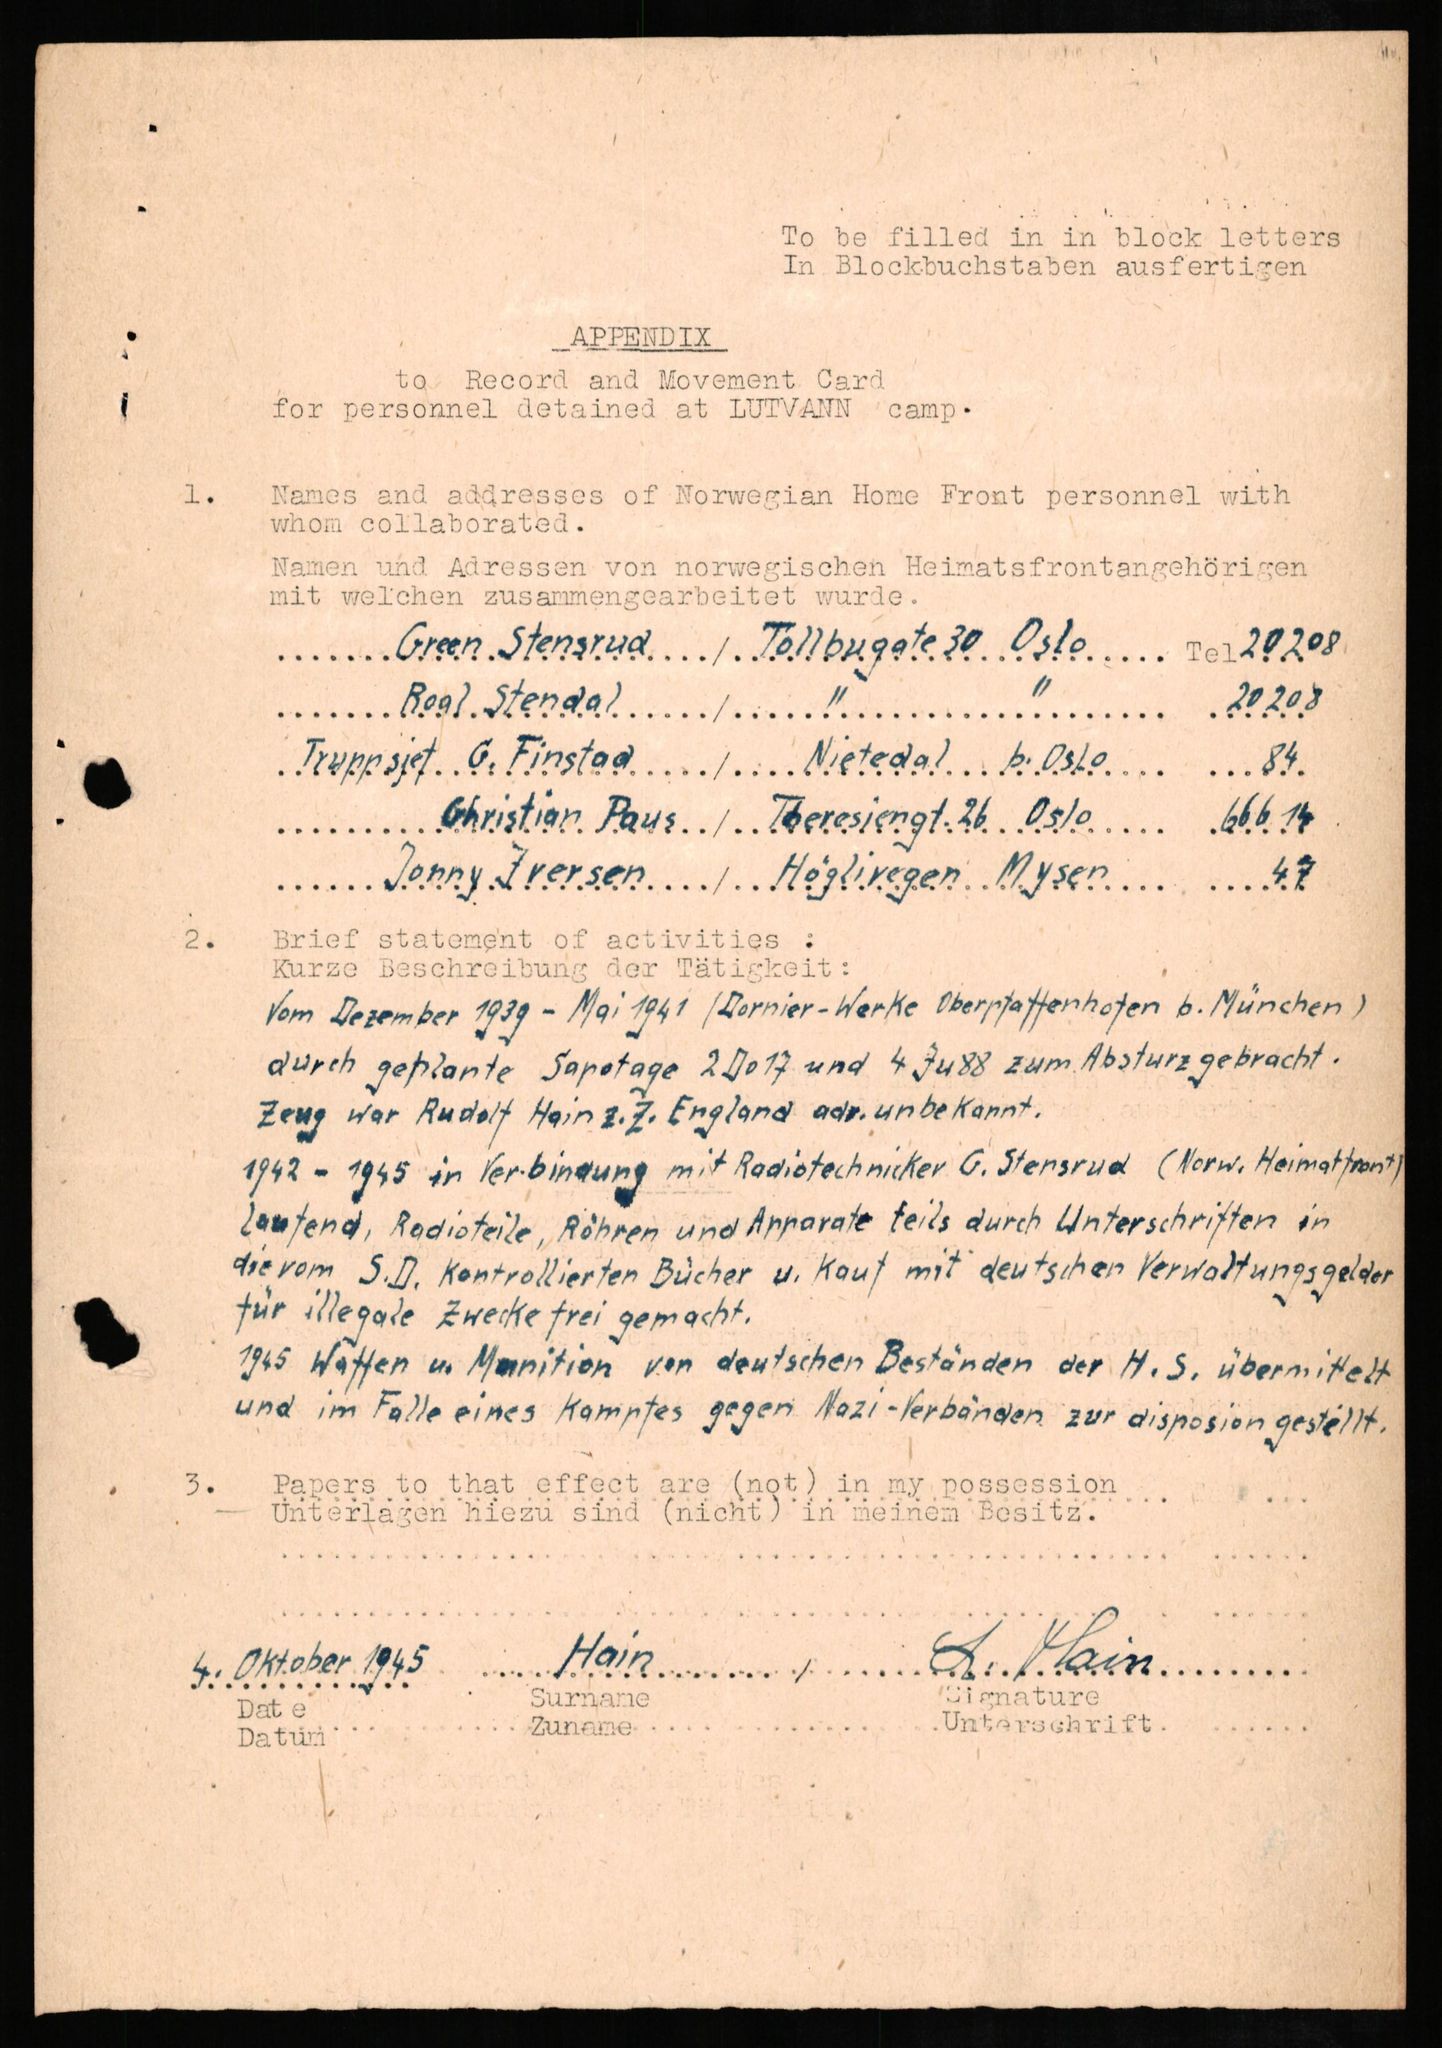 To be filled in in block letters
In Blockbuchstaben ausfertigen
APPENDIX
to Record and Movement Card
for personnel detained at LUTVANN camp.
1. Names and addresses of Norwegian Home Front personnel with
whom collaborated.
Namen und Adressen von norwegischen Heimatsfrontangehörigen
mit welchen zusammengearbeitet wurde.
Green Stensrud / Tollbugate 30 Oslo Tel 20208
Roal Stendal / " " 20208
Truppsjef G. Finstad / Nietedal b. Oslo 84
Christian Paus / Theresiengt. 26 Oslo 666 14
Jonny Iversen / Höglivegen Mysen 47
2. Brief statement of activities :
Kurze Beschreibung der Tätigkeit:
Vom Dezember 1939 - Mai 1941 (Dornier-Werke Oberpfaffenhofen b. München)
durch geplante Sapotage 2 Do 17 und 4 Ju 88 zum Absturz gebracht.
Zeug war Rudolf Hain z.Z. England adr. unbekannt.
1942 - 1945 in Verbindung mit Radiotechnicker G. Stensrud (Norw. Heimatfront)
laufend, Radioteile, Röhren und Apparate teils durch Unterschriften in
die vom S.D. Kontrollierten Bücher u. Kauf mit deutschen Verwaltungsgelder
für illegale Zwecke frei gemacht.
1945 Waffen u. Munition von deutschen Beständen der H.S. übermittelt
und im Falle eines Kampfes gegen Nazi-Verbänden zur disposion gestellt.
3. Papers to that effect are (not) in my possession
Unterlagen hiezu sind (nicht) in meinem Besitz.
4. Oktober 1945 Hain / Hain
Date Surname Signature
Datum Zuname Unterschrift